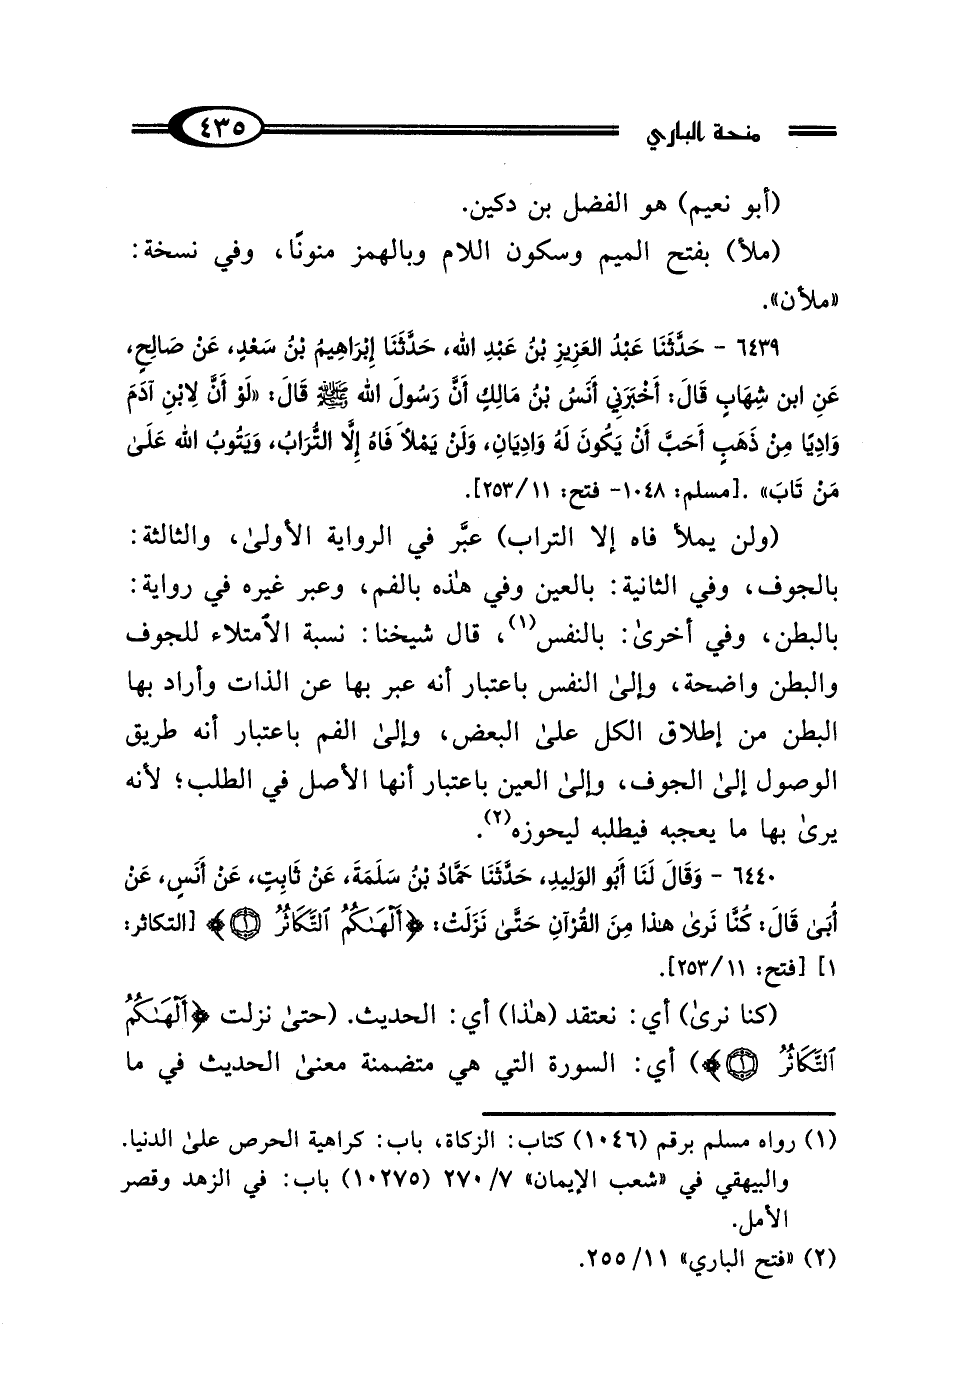 منحة الباري ٤٣٥
(أبو نعيم) هو الفضل بن دكين.
(ملأ) بفتح الميم وسكون اللام وبالهمز منونًا، وفي نسخة:
«ملأن».
٦٤٣٩ - حَدَّثَنَا عَبْدُ العَزِيزِ بْنُ عَبْدِ الله، حَدَّثَنَا إِبْرَاهِيمُ بْنُ سَعْدٍ، عَنْ صَالِحٍ،
عَنِ ابن شِهَابٍ قَالَ: أَخْبَرَنِي أَنَسُ بْنُ مَالِكٍ أَنَّ رَسُولَ الله ﷺ قَالَ: «لَوْ أَنَّ لِابْنِ آدَمَ
وَادِيًا مِنْ ذَهَبٍ أَحَبَّ أَنْ يَكُونَ لَهُ وَادِيَانِ، وَلَنْ يَمْلأَ فَاهُ إِلَّا التُّرَابُ، وَيَتُوبُ الله عَلَىٰ
مَنْ تَابَ» .[مسلم: ١٠٤٨- فتح: ١١/ ٢٥٣].
(ولن يملأ فاه إلا التراب) عبَّر في الرواية الأولىٰ، والثالثة:
بالجوف، وفي الثانية: بالعين وفي هٰذه بالفم، وعبر غيره في رواية:
بالبطن، وفي أخرىٰ: بالنفس(١)، قال شيخنا: نسبة الأمتلاء للجوف
والبطن واضحة، وإلىٰ النفس باعتبار أنه عبر بها عن الذات وأراد بها
البطن من إطلاق الكل علىٰ البعض، وإلىٰ الفم باعتبار أنه طريق
الوصول إلىٰ الجوف، وإلىٰ العين باعتبار أنها الأصل في الطلب؛ لأنه
يرىٰ بها ما يعجبه فيطلبه ليحوزه(٢).
٦٤٤٠ - وَقَالَ لَنَا أَبُو الوَلِيدِ، حَدَّثَنَا حَمَّادُ بْنُ سَلَمَةَ، عَنْ ثَابِتٍ، عَنْ أَنَسٍ، عَنْ
أُبَىٰ قَالَ: كُنَّا نَرىٰ هٰذا مِنَ القُرْآنِ حَتَّىٰ نَزَلَتْ: ﴿أَلْهَىٰكُمُ ٱلتَّكَاثُرُ ١﴾ [التكاثر:
١] [فتح: ١١/ ٢٥٣].
(كنا نرىٰ) أي: نعتقد (هٰذا) أي: الحديث. (حتىٰ نزلت ﴿أَلْهَىٰكُمُ
ٱلتَّكَاثُرُ ١﴾) أي: السورة التي هي متضمنة معنىٰ الحديث في ما
(١) رواه مسلم برقم (١٠٤٦) كتاب: الزكاة، باب: كراهية الحرص علىٰ الدنيا.
والبيهقي في «شعب الإيمان» ٧/ ٢٧٠ (١٠٢٧٥) باب: في الزهد وقصر
الأمل.
(٢) «فتح الباري» ١١/ ٢٥٥.